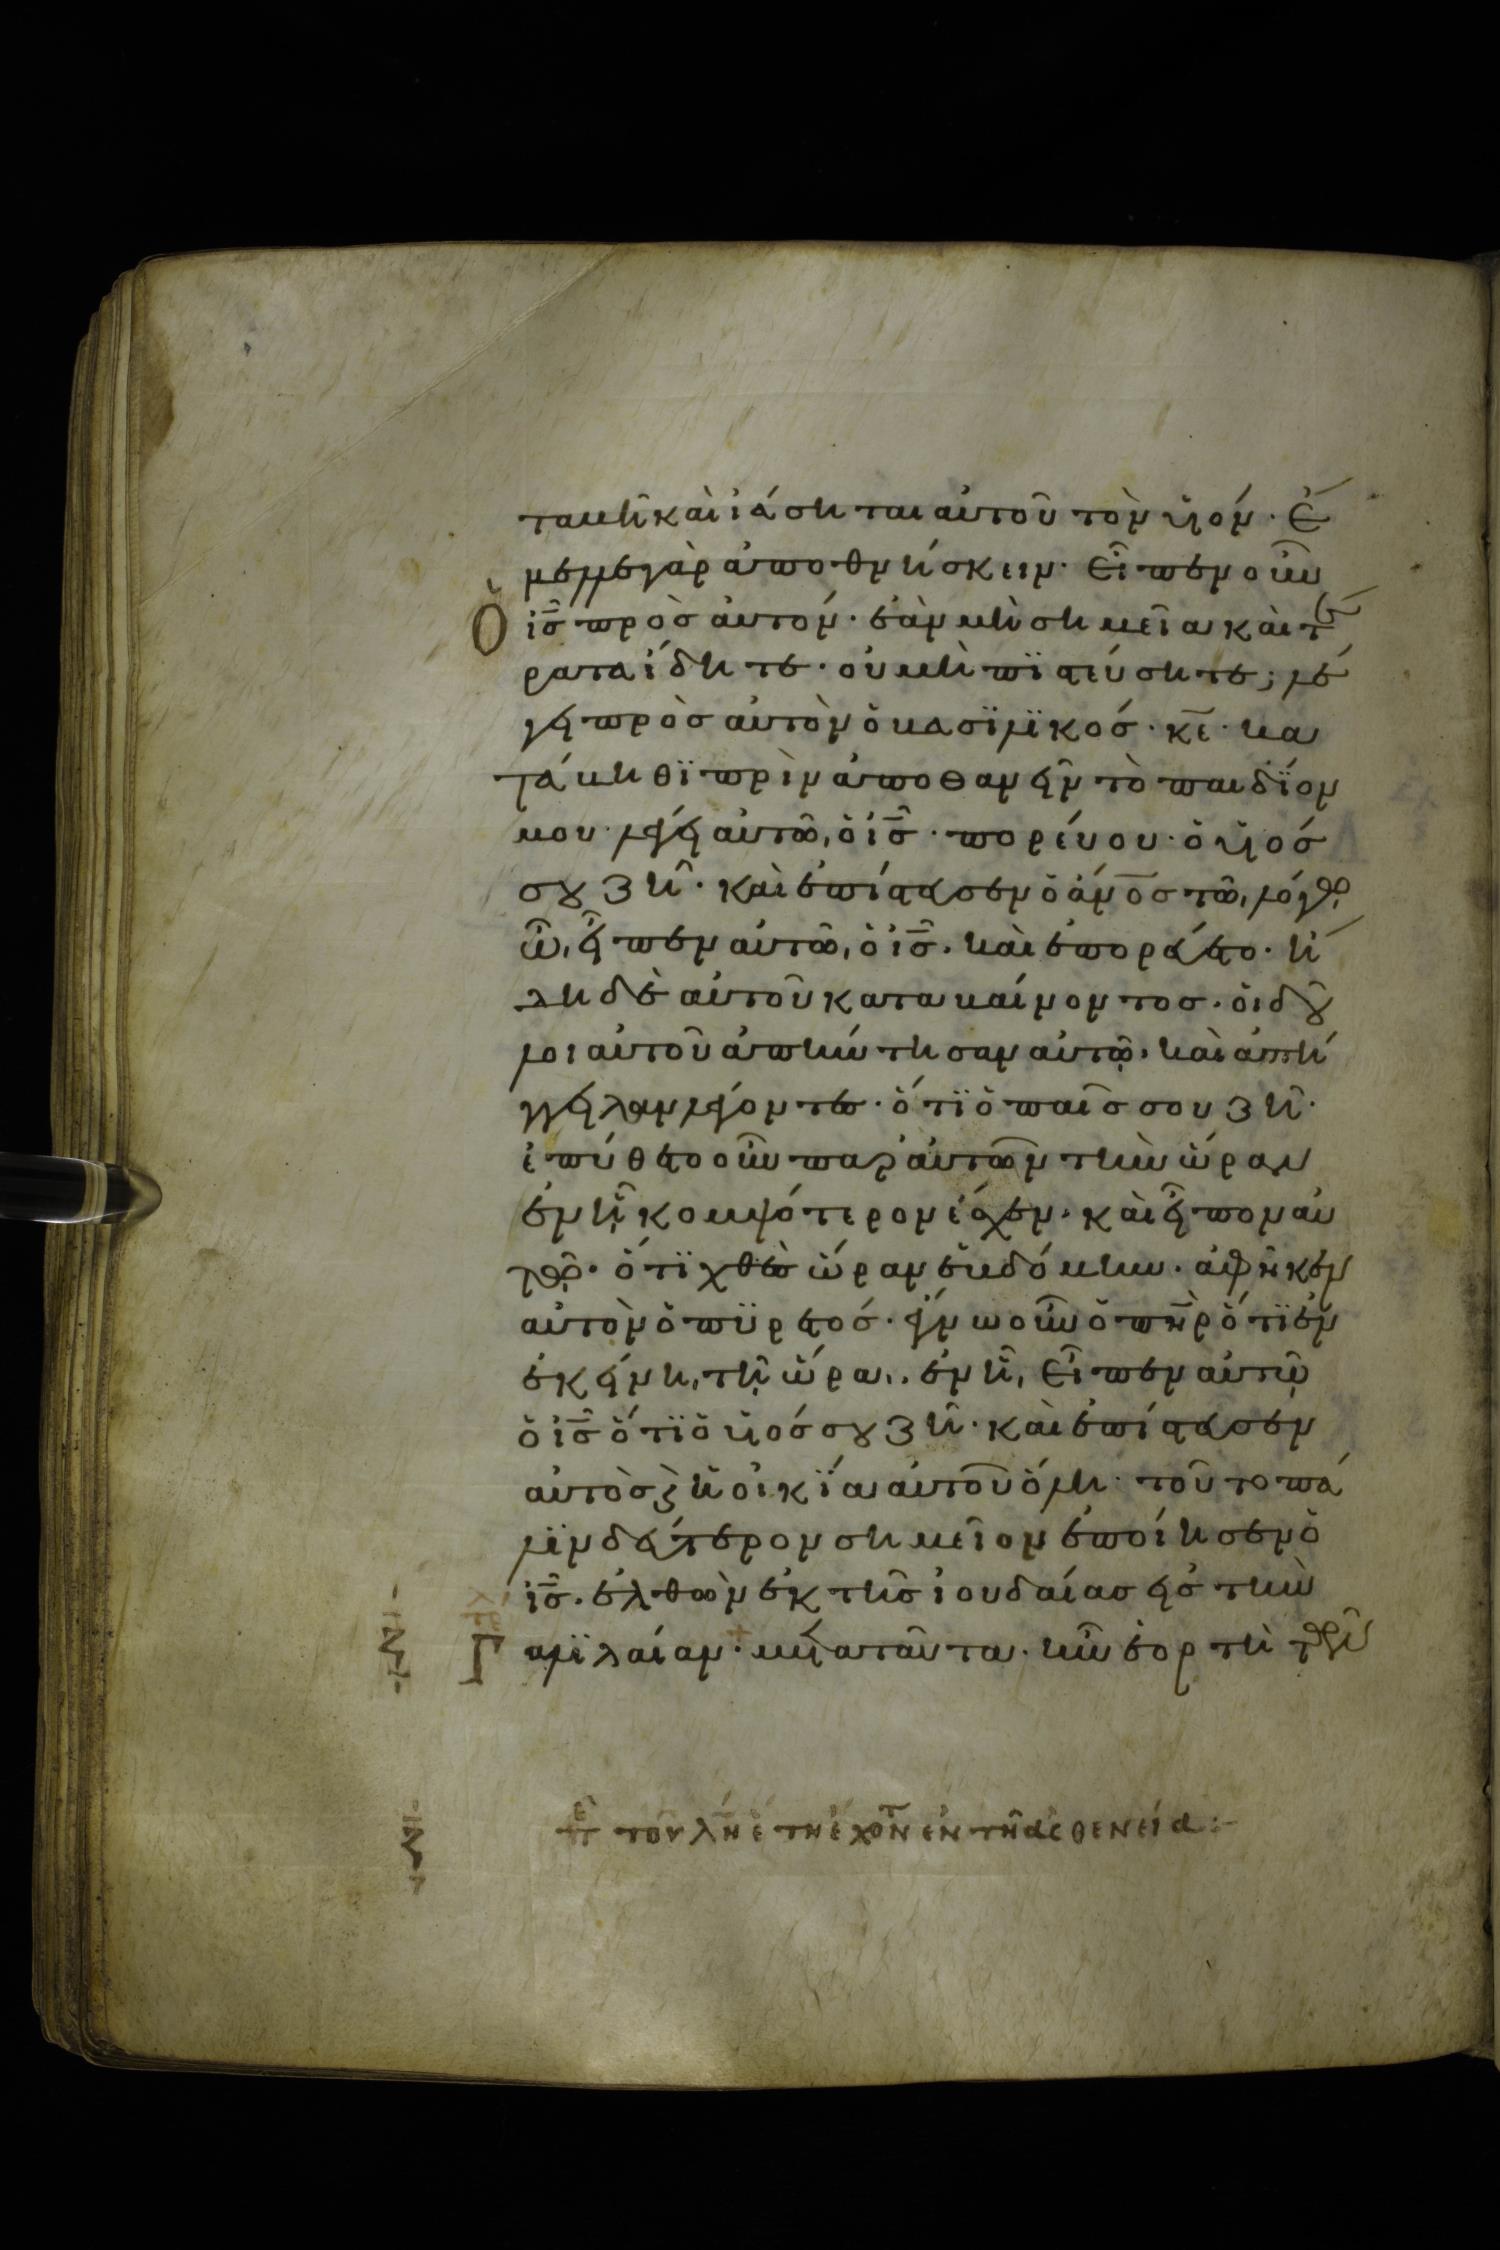 ταβῆ καὶ ἰάσηται αὐτοῦ τὸν υἱόν· ἔ
μελλε γὰρ ἀποθνήσκειν· εἶπεν οὖν
ὁ ἰς̅ πρὸς αὐτόν· ἐὰν μὴ σημεῖα καὶ τέ
ρατα ἴδητε· οὐ μὴ πϊστεύσητε; λέ
γει πρὸς αὐτὸν ὁ βασϊλϊκός· κε̅· κα
τάβηθϊ πρὶν ἀποθανεῖν τὸ παιδίον
μου· λέγει αὐτῶ, ὁ ἰς̅· πορεύου· ὁ υἱός
σου ζῆ· καὶ ἐπίστευσεν ὁ ἄνο̅ς τῶ, λόγω
ὧ, εἶπεν αὐτῶ, ὁ ἰς̅· καὶ ἐπορεύετο· ἤ
δη δὲ αὐτοῦ καταβαίνοντος· οἱ δοῦ
λοι αὐτοῦ ἀπήντησαν αὐτῷ· καὶ ἀπή
γγειλαν λέγοντες· ὅτϊ ὁ παῖς σου ζῆ·
ἐπύθετο οὖν παρ' αὐτῶν τὴν ὥραν
ἐν ᾗ κομψότερον ἔσχεν· καὶ εἶπον αὐ
τῷ· ὅτϊ χθὲς ὥραν ἑβδόμην· ἀφῆκεν
αὐτὸν ὁ πϋρετός· ἔγνω οὖν ὁ πη̅ρ ὅτϊ ἐν
ἐκείνη, τῆ ὥρα, ἐν ἧ, εἶπεν αὐτῷ
ὁ ἰς̅ ὅτϊ ὁ υἱός σου ζῆ· καὶ ἐπίστευσεν
αὐτὸς καὶ ἡ οἰκία αὐτοῦ ὅλη· τοῦτο πά
λϊν δεύτερον σημεῖον ἐποίησεν ὁ
ἰς̅· ἐλθὼν ἐκ τῆς ἰουδαίας εἰς τὴν
Γαλϊλαίαν· μετὰ ταῦτα· ἦν ἑορτὴ τῶν